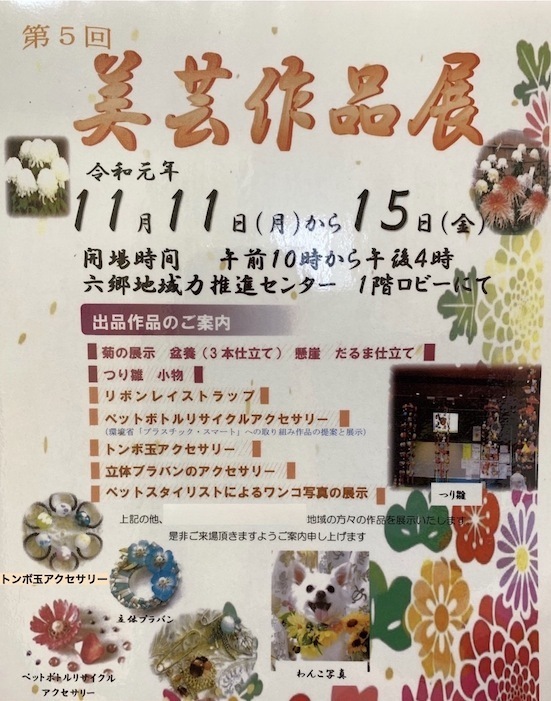 第5回
美芸作品展
令和元年
11月11日(月)から15日(金)
開場時間 午前10時から午後4時
六郷地域力推進センター 1階ロビーにて
出品作品のご案内
菊の展示 盆養(3本仕立て) 懸崖 だるま仕立て
つり雛 小物
リボンレイストラップ
ペットボトルリサイクルアクセサリー
(環境省「プラスチック・スマート」への取り組み作品の提案と展示)
トンボ玉アクセサリー
立体プラバンのアクセサリー
ペットスタイリストによるワンコ写真の展示
つり雛
上記の他、 地域の方々の作品を展示いたします
是非ご来場頂きますようご案内申し上げます
トンボ玉アクセサリー
立体プラバン
ペットボトルリサイクル
アクセサリー
わんこ写真